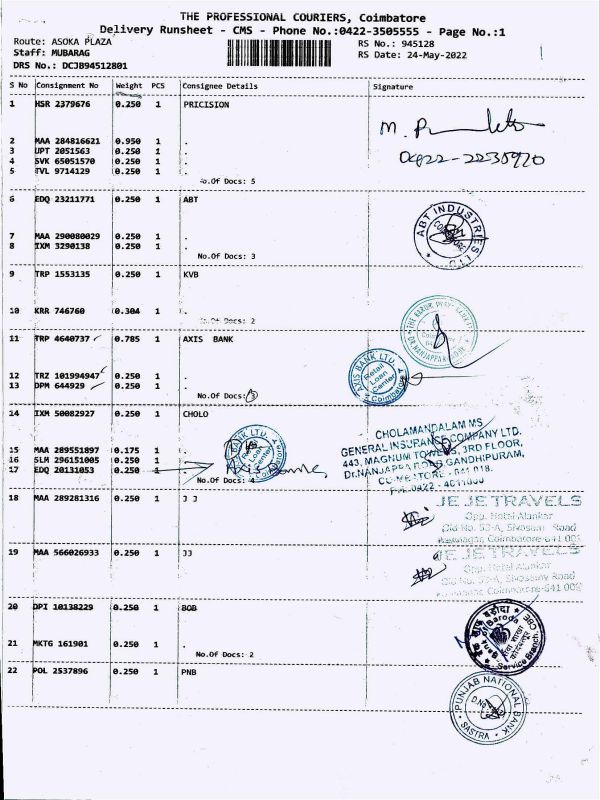 THE PROFESSIONAL COURIERS, Coimbatore
Delivery Runsheet - CMS - Phone No.:0422-3505555 - Page No.:1
Route: ASOKA PLAZA RS No.: 945128
Staff: MUBARAG RS Date: 24-May-2022
DRS No.: DCJB94512801
S No Consignment No Weight PCS Consignee Details Signature
1 HSR 2379676 0.250 1 PRICISION
2 MAA 284816621 0.950 1 .
3 UPT 2051563 0.250 1 .
4 SVK 65051570 0.250 1 .
5 TVL 9714129 0.250 1 .
No.Of Docs: 5
6 EDQ 23211771 0.250 1 ABT
ABT INDUSTRIES LTD
7 MAA 290080029 0.250 1 .
8 IXM 3290138 0.250 1 .
No.Of Docs: 3
9 TRP 1553135 0.250 1 KVB
10 KRR 746760 0.304 1 .
No.Of Docs: 2
11 TRP 4640737 0.785 1 AXIS BANK
AXIS BANK LTD.
Retail
Loan
Center
Coimbatore
12 TRZ 101994947 0.250 1 .
13 DPM 644929 0.250 1 .
No.Of Docs: 3
14 IXM 50082927 0.250 1 CHOLO
CHOLAMANDALAM MS
GENERAL INSURANCE COMPANY LTD.
443, MAGNUM TOWERS, 3RD FLOOR,
Dr.NANJAPPA ROAD, GANDHIPURAM,
15 MAA 289551897 0.175 1 .
16 SLM 296151005 0.250 1 .
17 EDQ 20131053 0.250 1
No.Of Docs: 4
18 MAA 289281316 0.250 1 J J
JE JE TRAVELS
Opp. Hotel Alankar
19 MAA 566026933 0.250 1 JJ
JE JE TRAVELS
Opp. Hotel Alankar
20 DPI 10138229 0.250 1 BOB
Bank of Baroda
Service Branch
21 MKTG 161901 0.250 1 .
No.Of Docs: 2
22 POL 2537896 0.250 1 PNB
PUNJAB NATIONAL BANK
SASTRA